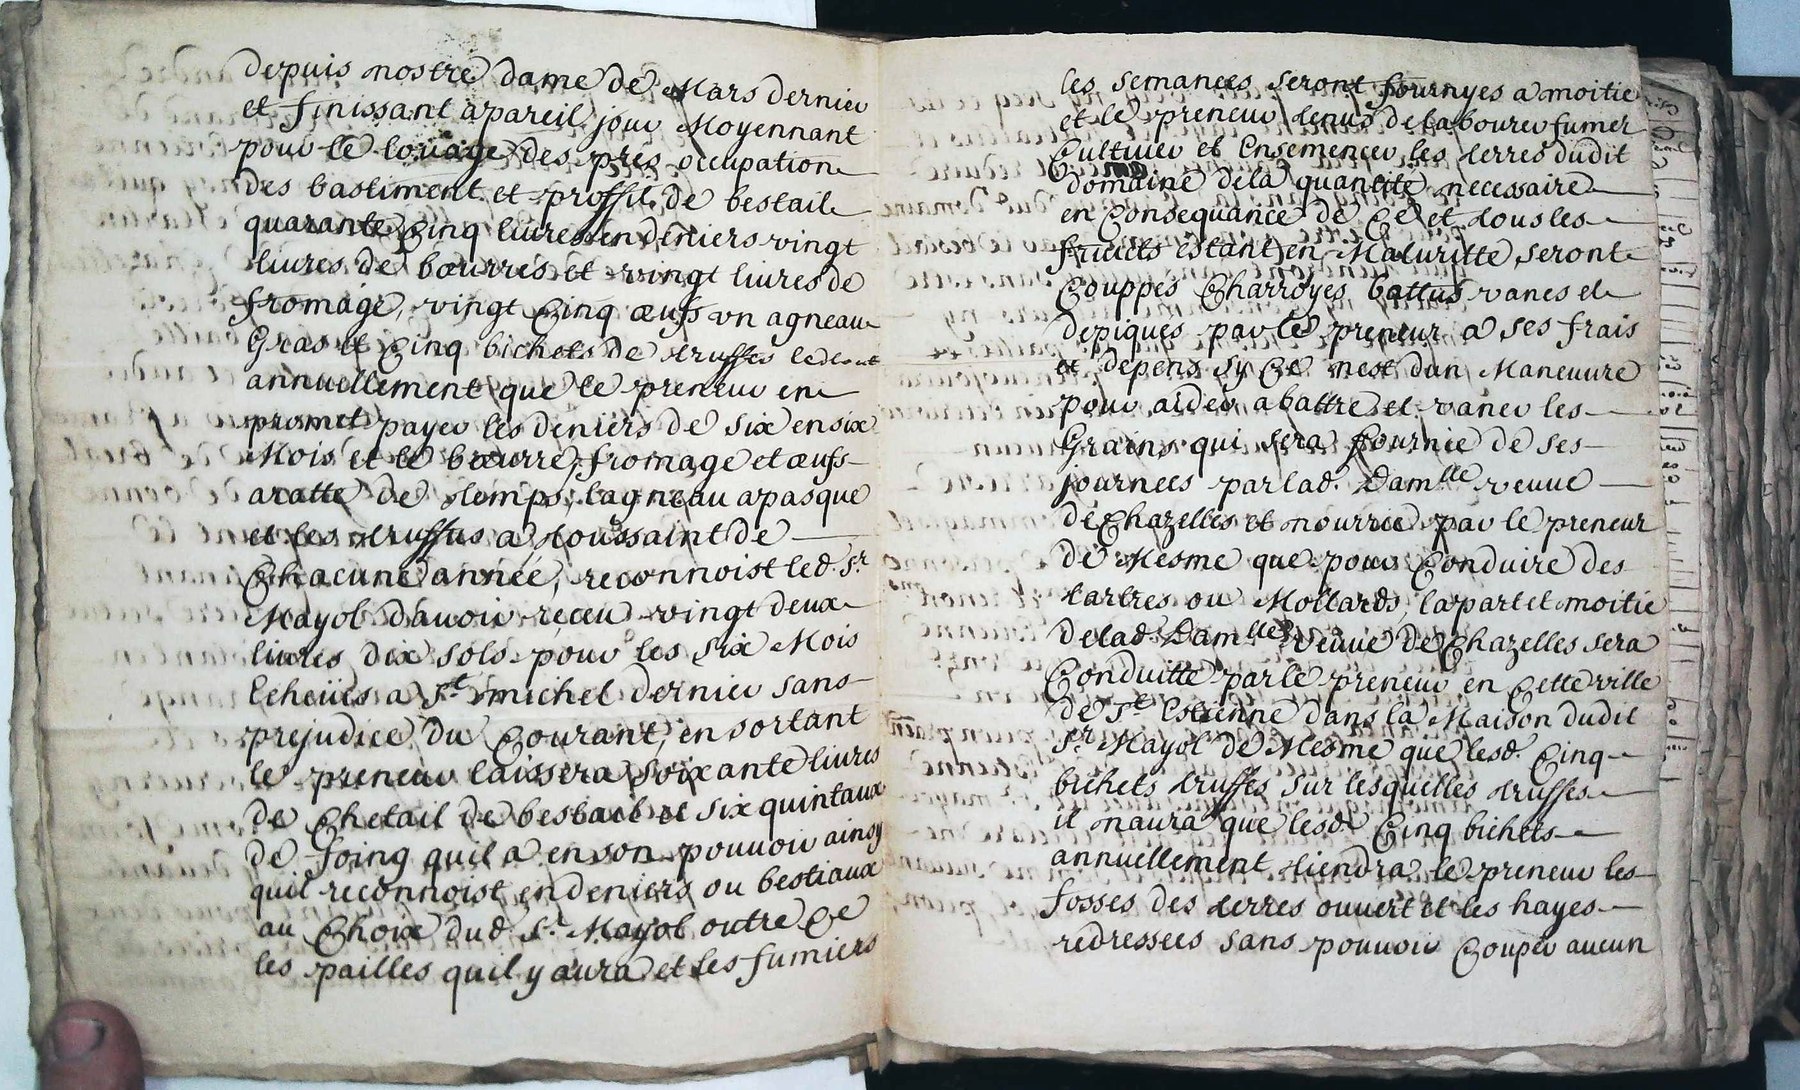 depuis nostre dame de Mars dernier
et finissant apareil jour Moyennant
pour le loüage des prés occupation
des bastiment et proffit de bestail
quarante Cinq liures en deniers vingt
liures de bœurres et vingt liures de
fromage, vingt Cinq œufs vn agneau
Gras et Cinq bichets de truffes le tout
annuellement que le preneur en
promet payer les deniers de six en six
Mois et le bœurre, fromage et œufs
aratte de temps, lagneau apasque
et les truffes a toussaint de
Chacune année, reconnoist led. Sr
Mayol dauoir receu vingt deux
liures dix sols pour les six Mois
Echeües a St michel dernier sans
prejudice du Courant, en sortant
le preneur laissera soixante liures
de Chetail de bestail et six quintaux
de foing quil a en son pouuoir ainsy
quil reconnoist en deniers ou bestiaux
au Choix dud. Sr Mayol outre Ce
les pailles quil y aura et les fumiers
les semances seront fournyes a moitié
et le preneur tenus de labourer fumer
Cultiuer et Ensemencer les terres dudit
domaine de la quantité necessaire
en Consequance de Ce et tous les
fruicts estant en Maturitte seront
Couppés Charroyés battus vanes et
depiques par le preneur a ses frais
et depens sy Ce nest dun Maneuure
pour aider a battre et vaner les
Grains qui sera fournie de ses
journées par lad. Damlle veuue
de Chazelles et nourrie par le preneur
de Mesme que pour Conduire des
tartres ou Mottards, la part et moitié
de lad. Damlle veuue de Chazelles sera
Conduitte par le preneur en Cette ville
de St Estienne dans la Maison dudit
Sr Mayol de Mesme que lesd. Cinq
bichets truffes sur lesquelles truffes
il naura que lesd. Cinq bichets
annuellement tiendra le preneur les
fosses des terres ouuert et les hayes
redressees sans pouuoir Couper aucun